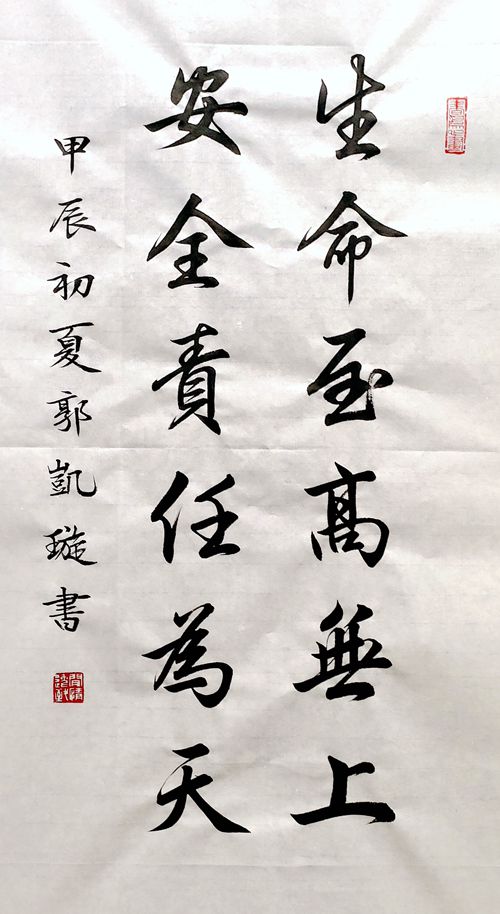 生命至高無上
安全責任為天
甲辰初夏郭凱璇書